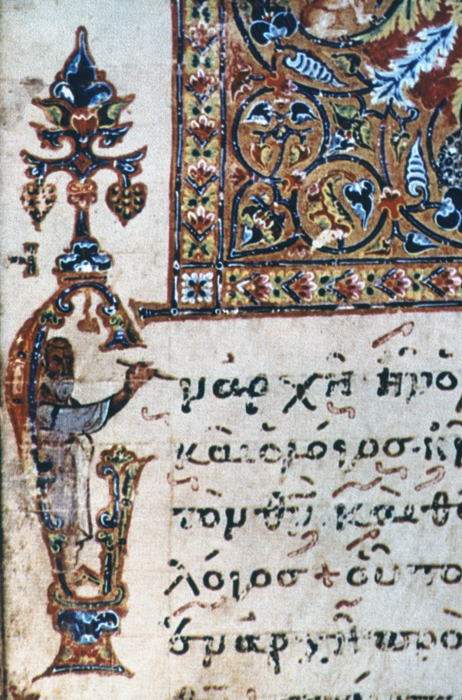 Ἐν ἀρχῆ ἦν ὁ
καὶ ὁ λόγος· ἦν
τὸν θν καὶ θ
λόγος + οὗτο
ἐν ἀρχῆ πρὸ